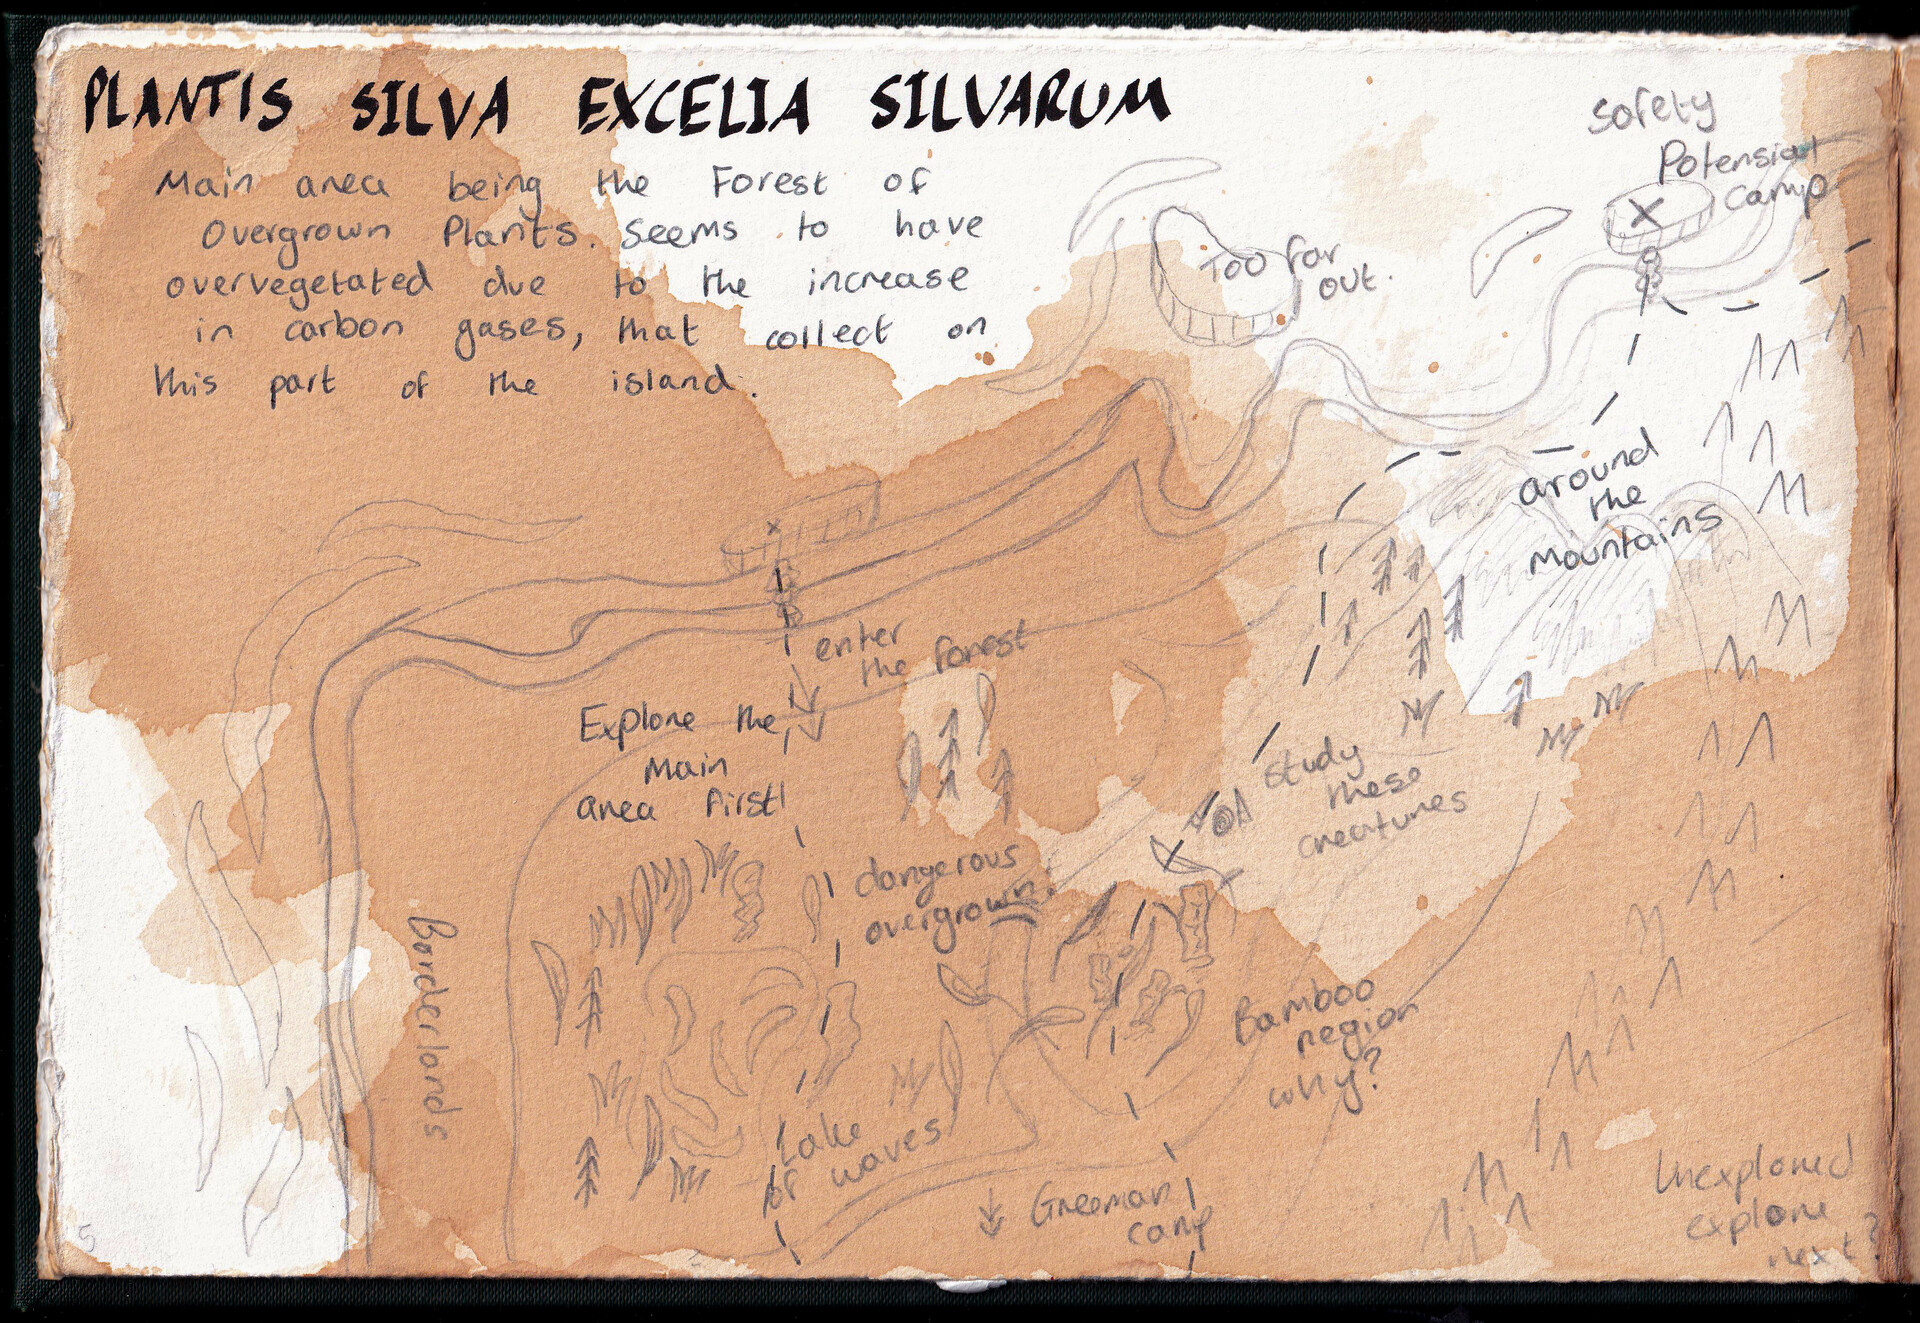 PLANTIS SILVA EXCELIA SILVARUM
Main area being the Forest of
Overgrown Plants. Seems to have
overvegetated due to the increase
in carbon gases, that collect on
this part of the island.
Safety
Potensial
camp
X
Too far
out.
around
the
Mountains
x
enter
the forest
Explore the
Main
area first!
study
these
creatures
dangerous
overgrown!
Borderlands
Bamboo
region
why?
Lake
of waves
Greeman
camp
Unexplored
explore
next?
5